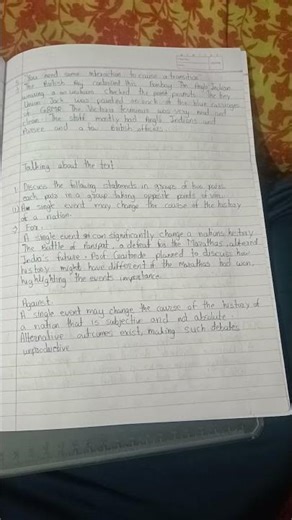 You need some interaction to cause a transition
The British Key controlled this
moving
Union Jack was painted on each of the blue carriages
of GBMR. The Victoria Terminus was very neat and
clean. The staff mostly had Anglo Indians and
Parsee and a few British officers
Talking about the text
1 Discuss the following statements in groups of two pairs,
each pair in a group taking opposite points of view.
A single event may change the course of the history
of a nation.
For:
A single event can significantly change a nation's history.
The Battle of Panipat, a defeat for the Marathas, altered
India's future. Prof. Gaitonde planned to discuss how
history might have different if the Marathas had won,
highlighting the events importance.
Against
A single event may change the course of the history of
a nation that is subjective and not absolute
Alternative outcomes exist, making such debates
unproductive